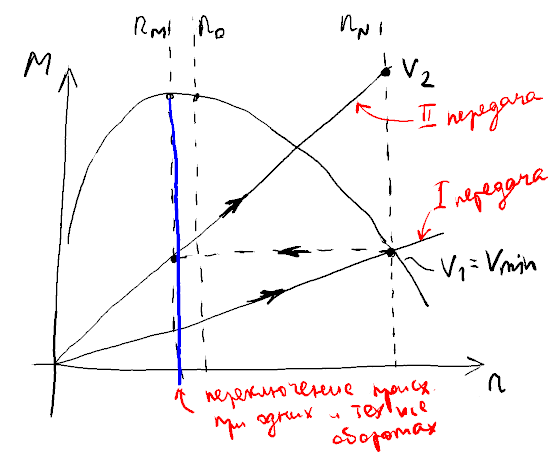 n_M n_0 n_N
M
V_2
II передача
I передача
V_1 = V_min
n
переключение происх.
при одних и тех же
оборотах